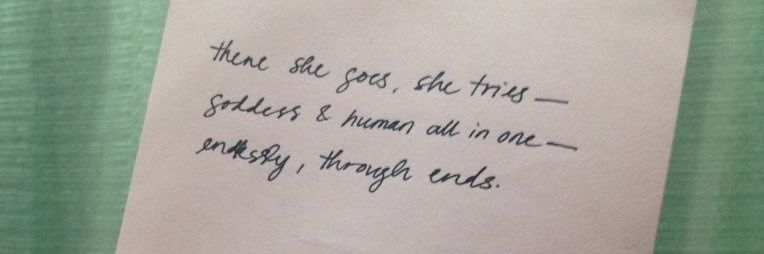 there she goes, she tries —
goddess & human all in one —
endlessly, through ends.